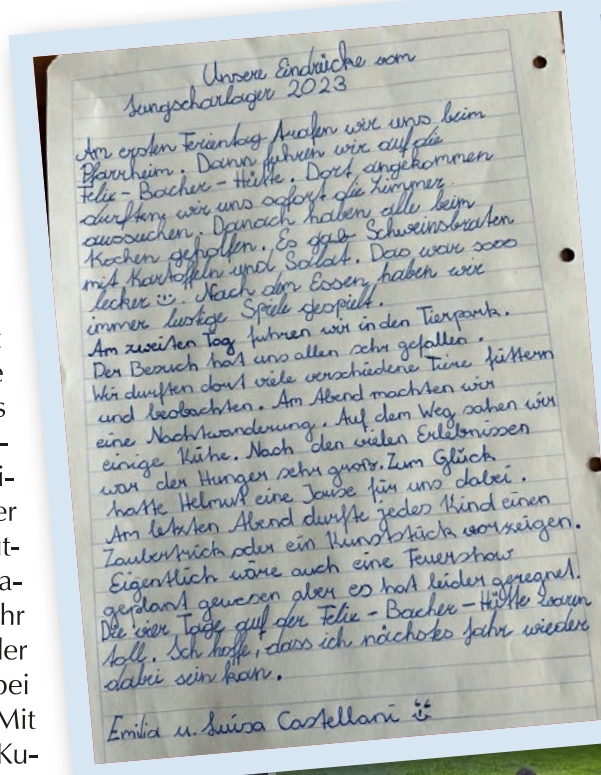 Unsere Eindrücke vom
Jungscharlager 2023
Am ersten Ferientag trafen wir uns beim
Pfarrheim. Dann fuhren wir auf die
Felix-Bacher-Hütte. Dort angekommen
durften wir uns sofort die Zimmer
aussuchen. Danach haben alle beim
Kochen geholfen. Es gab Schweinsbraten
mit Kartoffeln und Salat. Das war sooo
lecker ☺. Nach dem Essen haben wir
immer lustige Spiele gespielt.
Am zweiten Tag fuhren wir in den Tierpark.
Der Besuch hat uns allen sehr gefallen.
Wir durften dort viele verschiedene Tiere füttern
und beobachten. Am Abend machten wir
eine Nachtwanderung. Auf dem Weg sahen wir
einige Kühe. Nach den vielen Erlebnissen
war der Hunger sehr groß. Zum Glück
hatte Helmut eine Jause für uns dabei.
Am letzten Abend durfte jedes Kind einen
Zaubertrick oder ein Kunststück vorzeigen.
Eigentlich wäre auch eine Feuershow
geplant gewesen aber es hat leider geregnet.
Die vier Tage auf der Felix-Bacher-Hütte waren
toll. Ich hoffe, dass ich nächstes Jahr wieder
dabei sein kan.
Emilia u. Luisa Castellani ☺
t
e
s
-
i-
er
ut-
a-
hr
der
bei
Mit
Ku-